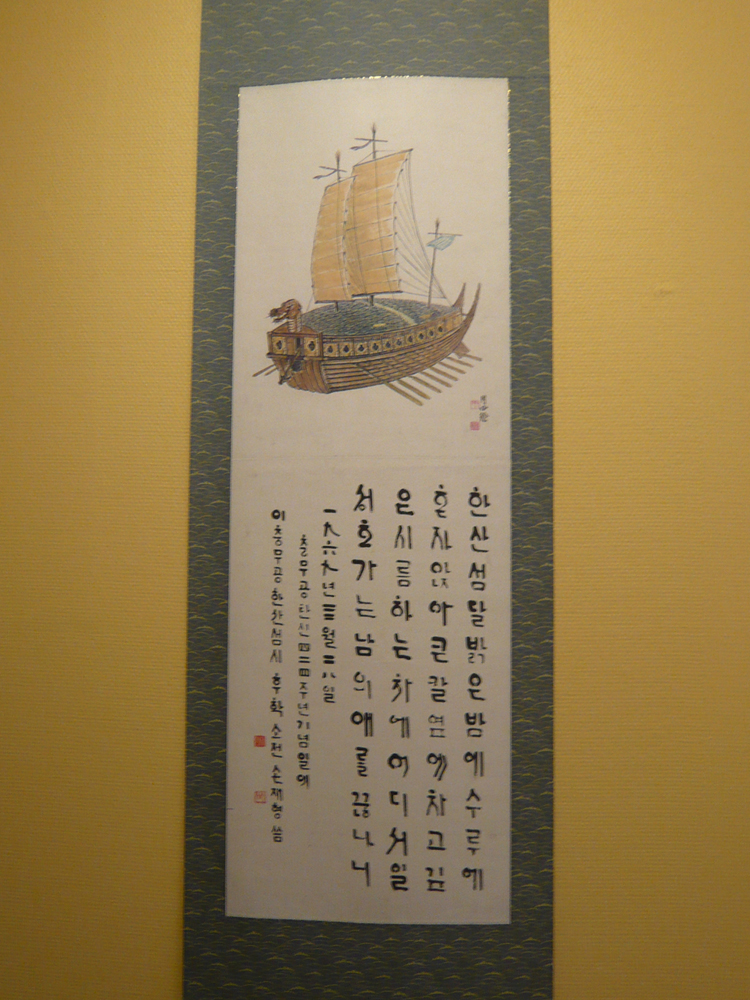 한산섬달밝은밤에수루에
혼자앉아큰칼옆에차고깊
은시름하는차에어디서일
서호가는남의애를끊나니
一九六九년亖월二八일
충무공탄신四二四주년기념일에
이충무공한산섬시 후학 소전 손재형 씀